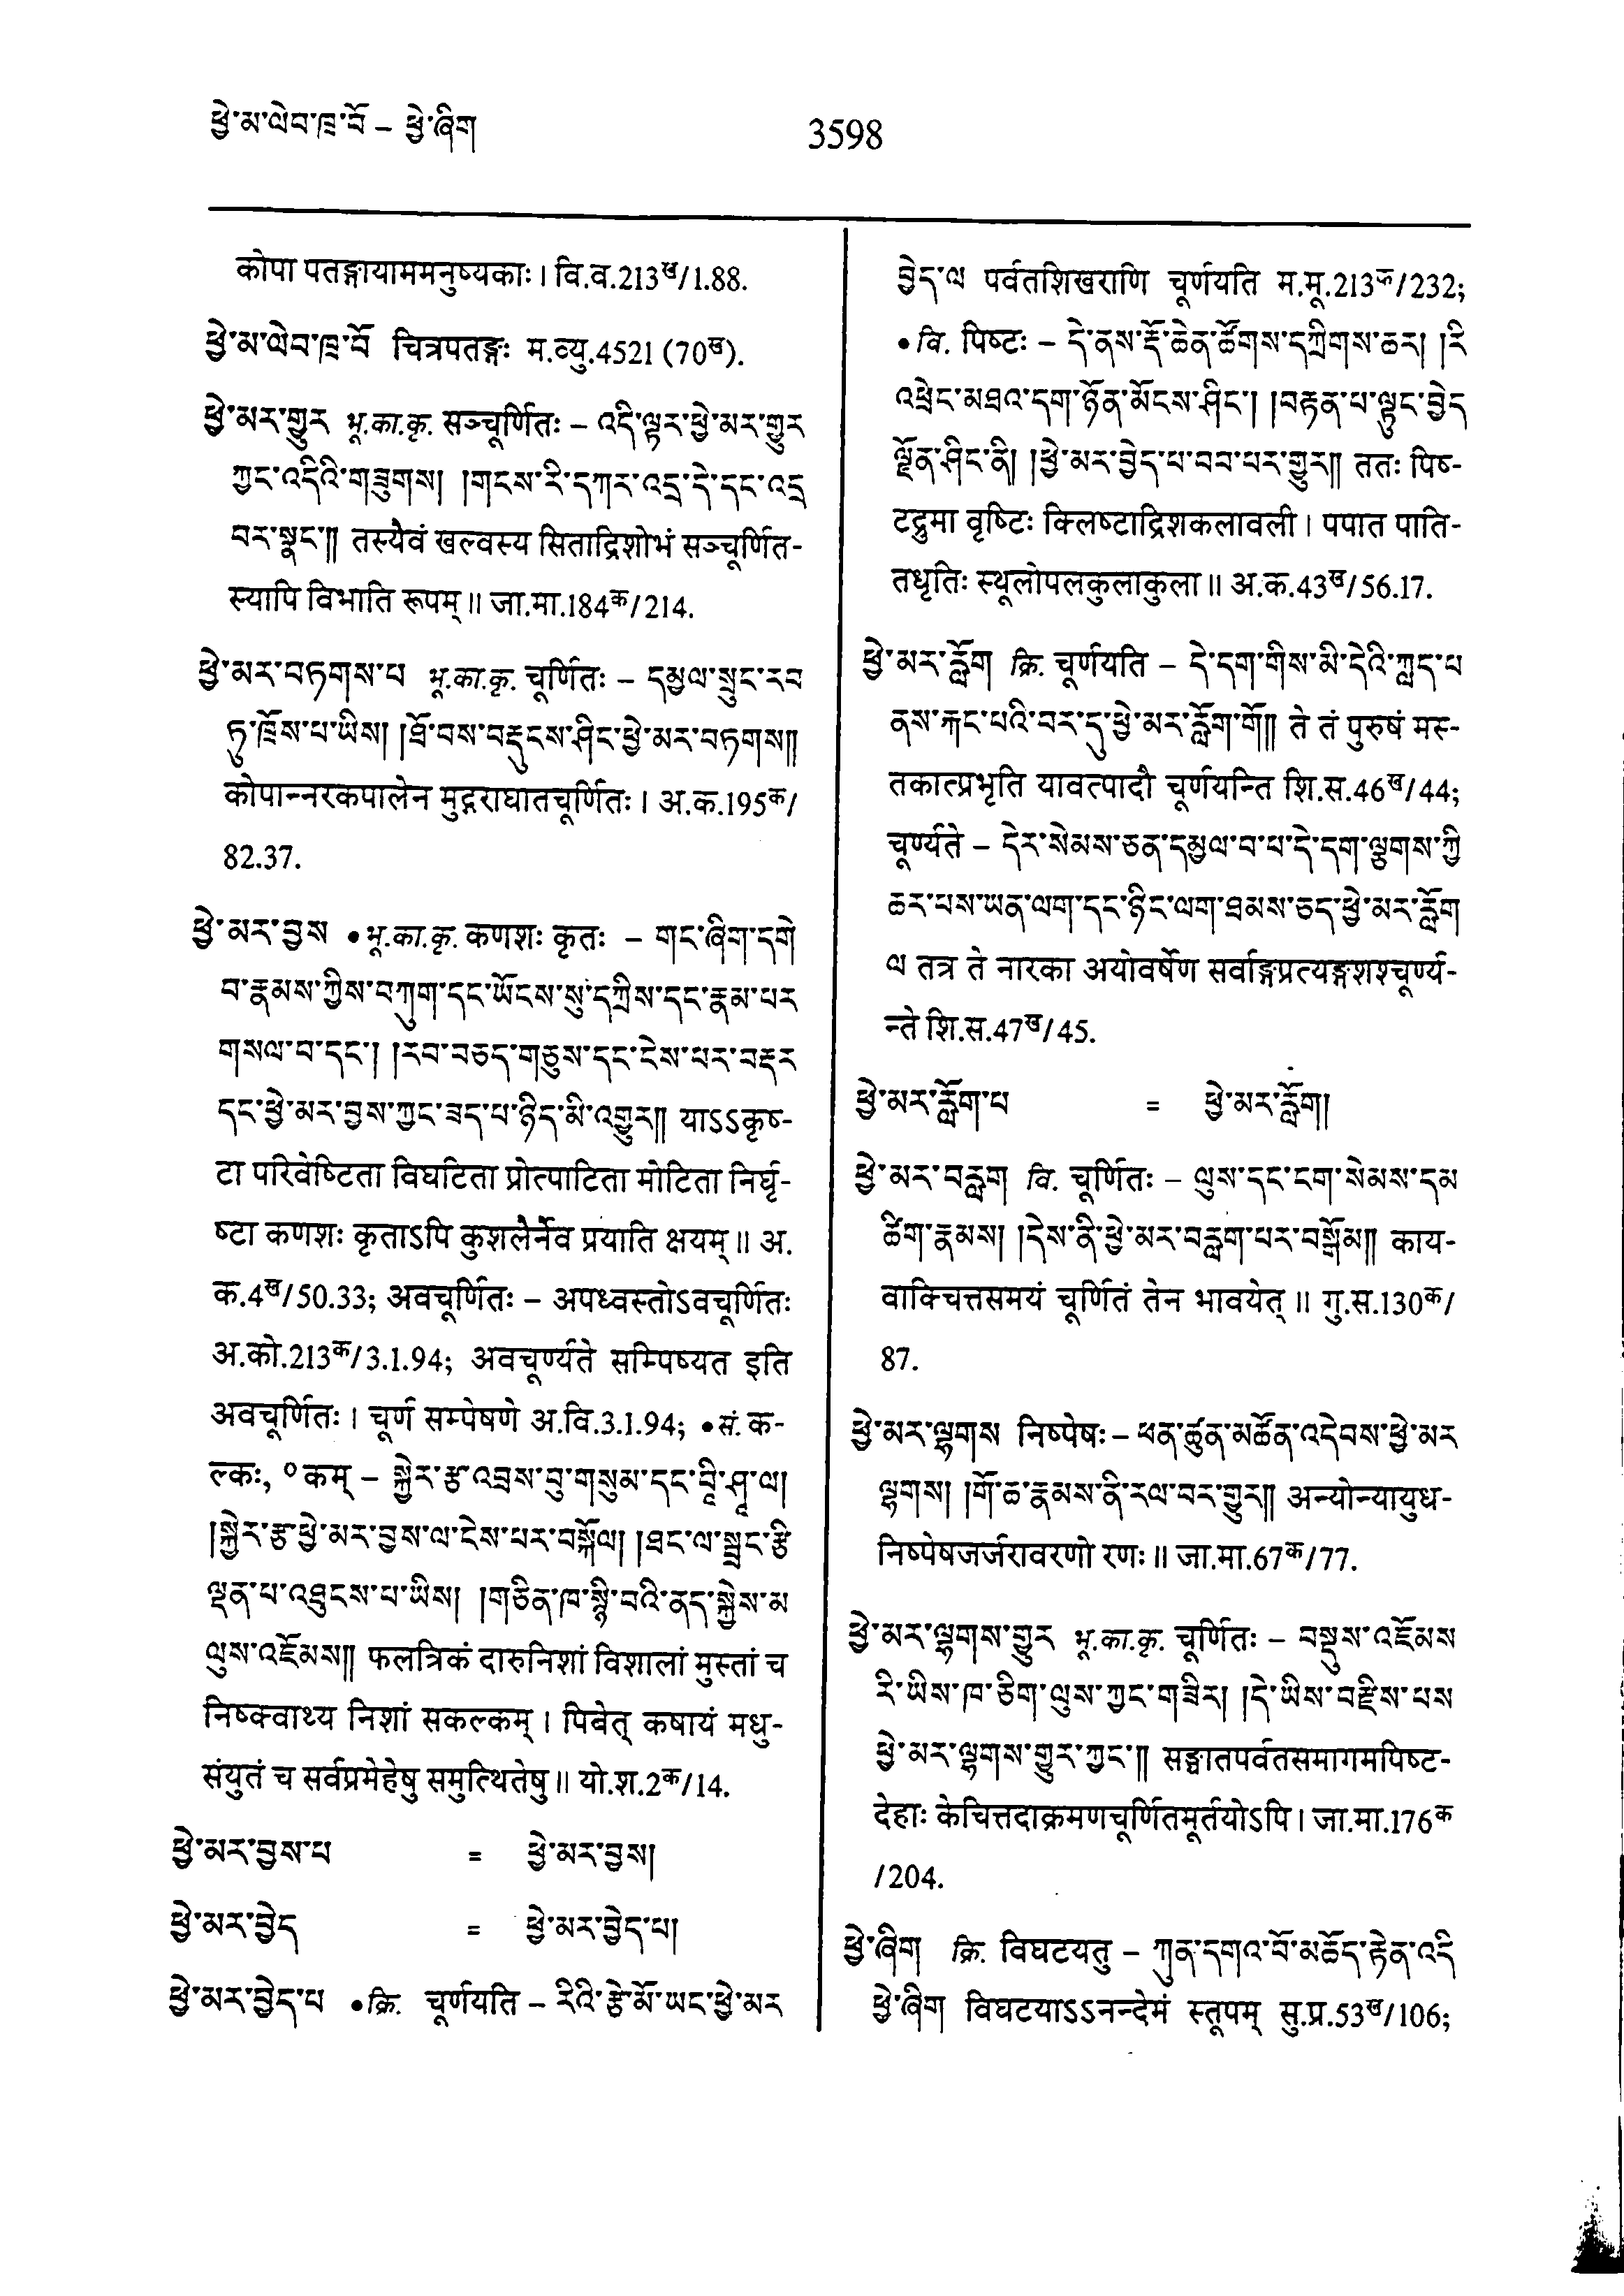 ཕྱེ་མ་ལེབ་ཁྲ་བོ – ཕྱེ་ཞིག
3598
कोपा पतङ्गायाममनुष्यकाः। वि.व.213ख/1.88.
ཕྱེ་མ་ལེབ་ཁྲ་བོ चित्रपतङ्गः म.व्यु.4521 (70ख).
ཕྱེ་མར་གྱུར भू.का.कृ. सञ्चूर्णितः – འདི་ལྟར་ཕྱེ་མར་གྱུར
ཀྱང་འདིའི་གཟུགས། །གངས་རི་དཀར་འདྲ་དེ་དང་འདྲ
བར་སྣང་༎ तस्यैवं खल्वस्य सिताद्रिशोभं सञ्चूर्णित-
स्यापि विभाति रूपम्॥ जा.मा.184क/214.
ཕྱེ་མར་བཏགས་པ भू.का.कृ. चूर्णितः – དམྱལ་སྲུང་རབ
ཏུ་ཁྲོས་པ་ཡིས། །ཐོ་བས་བརྡུངས་ཤིང་ཕྱེ་མར་བཏགས༎
कोपान्नरकपालेन मुद्गराघातचूर्णितः। अ.क.195क/
82.37.
ཕྱེ་མར་བྱས •भू.का.कृ. कणशः कृतः – གང་ཞིག་དགེ
བ་རྣམས་ཀྱིས་བཀུག་དང་ཡོངས་སུ་དཀྲིས་དང་རྣམ་པར
གསལ་བ་དང་། །རབ་བཅད་གཅུས་དང་ངེས་པར་བརྡར
དང་ཕྱེ་མར་བྱས་ཀྱང་ཟད་པ་ཉིད་མི་འགྱུར༎ याऽऽकृष्-
टा परिवेष्टिता विघटिता प्रोत्पाटिता मोटिता निर्घृ-
ष्टा कणशः कृताऽपि कुशलैर्नैव प्रयाति क्षयम्॥ अ.
क.4ख/50.33; अवचूर्णितः – अपध्वस्तोऽवचूर्णितः
अ.को.213क/3.1.94; अवचूर्ण्यते सम्पिष्यत इति
अवचूर्णितः। चूर्ण सम्पेषणे अ.वि.3.1.94; •सं. क-
ल्कः, ०कम् – སྐྱེར་རྩ་འབྲས་བུ་གསུམ་དང་བཱི་ཤཱ་ལ།
།སྐྱེར་རྩ་ཕྱེ་མར་བྱས་ལ་ངེས་པར་བསྐོལ། །ཐང་ལ་སྦྲང་རྩི
ལྡན་པ་འཐུངས་པ་ཡིས། །གཅིན་ཁ་སྙི་བའི་ནད་སྐྱེས་མ
ལུས་འཇོམས༎ फलत्रिकं दारुनिशां विशालां मुस्तां च
निष्क्वाथ्य निशां सकल्कम्। पिबेत् कषायं मधु-
संयुतं च सर्वप्रमेहेषु समुत्थितेषु॥ यो.श.2क/14.
ཕྱེ་མར་བྱས་པ = ཕྱེ་མར་བྱས།
ཕྱེ་མར་བྱེད = ཕྱེ་མར་བྱེད་པ།
ཕྱེ་མར་བྱེད་པ •क्रि. चूर्णयति – རིའི་རྩེ་མོ་ཡང་ཕྱེ་མར
བྱེད་ལ पर्वतशिखराणि चूर्णयति म.मू.213क/232;
•वि. पिष्टः – དེ་ནས་རྡོ་ཆེན་ཚོགས་དཀྲིགས་ཆར། །རི
འཕྲེང་མཐའ་དག་ཉོན་མོངས་ཤིང་། །བརྟན་པ་ལྟུང་བྱེད
ལྗོན་ཤིང་ནི། །ཕྱེ་མར་བྱེད་པ་བབ་པར་གྱུར༎ ततः पिष्-
टद्रुमा वृष्टिः क्लिष्टाद्रिशकलावली। पपात पाति-
तधृतिः स्थूलोपलकुलाकुला॥ अ.क.43ख/56.17.
ཕྱེ་མར་རློག क्रि. चूर्णयति – དེ་དག་གིས་མི་དེའི་ཀླད་པ
ནས་རྐང་པའི་བར་དུ་ཕྱེ་མར་རློག་གོ༎ ते तं पुरुषं मस्-
तकात्प्रभृति यावत्पादौ चूर्णयन्ति शि.स.46ख/44;
चूर्ण्यते – དེར་སེམས་ཅན་དམྱལ་བ་པ་དེ་དག་ལྕགས་ཀྱི
ཆར་པས་ཡན་ལག་དང་ཉིང་ལག་ཐམས་ཅད་ཕྱེ་མར་རློག
ལ तत्र ते नारका अयोवर्षेण सर्वाङ्गप्रत्यङ्गशश्चूर्ण्य-
न्ते शि.स.47ख/45.
ཕྱེ་མར་རློག་པ = ཕྱེ་མར་རློག།
ཕྱེ་མར་བརླག वि. चूर्णितः – ལུས་དང་ངག་སེམས་དམ
ཚིག་རྣམས། །དེས་ནི་ཕྱེ་མར་བརླག་པར་བསྒོམ༎ काय-
वाक्चित्तसमयं चूर्णितं तेन भावयेत्॥ गु.स.130क/
87.
ཕྱེ་མར་ལྷགས निष्पेषः – ཕན་ཚུན་མཚོན་འདེབས་ཕྱེ་མར
ལྷགས། །གོ་ཆ་རྣམས་ནི་རལ་བར་གྱུར༎ अन्योन्यायुध-
निष्पेषजर्जरावरणो रणः॥ जा.मा.67क/77.
ཕྱེ་མར་ལྷགས་གྱུར भू.का.कृ. चूर्णितः – བསྡུས་འཇོམས
རི་ཡིས་ཁ་ཅིག་ལུས་ཀྱང་གཟིར། །དེ་ཡིས་བརྫིས་པས
ཕྱེ་མར་ལྷགས་གྱུར་ཀྱང་༎ सङ्घातपर्वतसमागमपिष्ट-
देहाः केचित्तदाक्रमणचूर्णितमूर्तयोऽपि। जा.मा.176क
/204.
ཕྱེ་ཞིག क्रि. विघटयतु – ཀུན་དགའ་བོ་མཆོད་རྟེན་འདི
ཕྱེ་ཞིག विघटयाऽऽनन्देमं स्तूपम् सु.प्र.53ख/106;